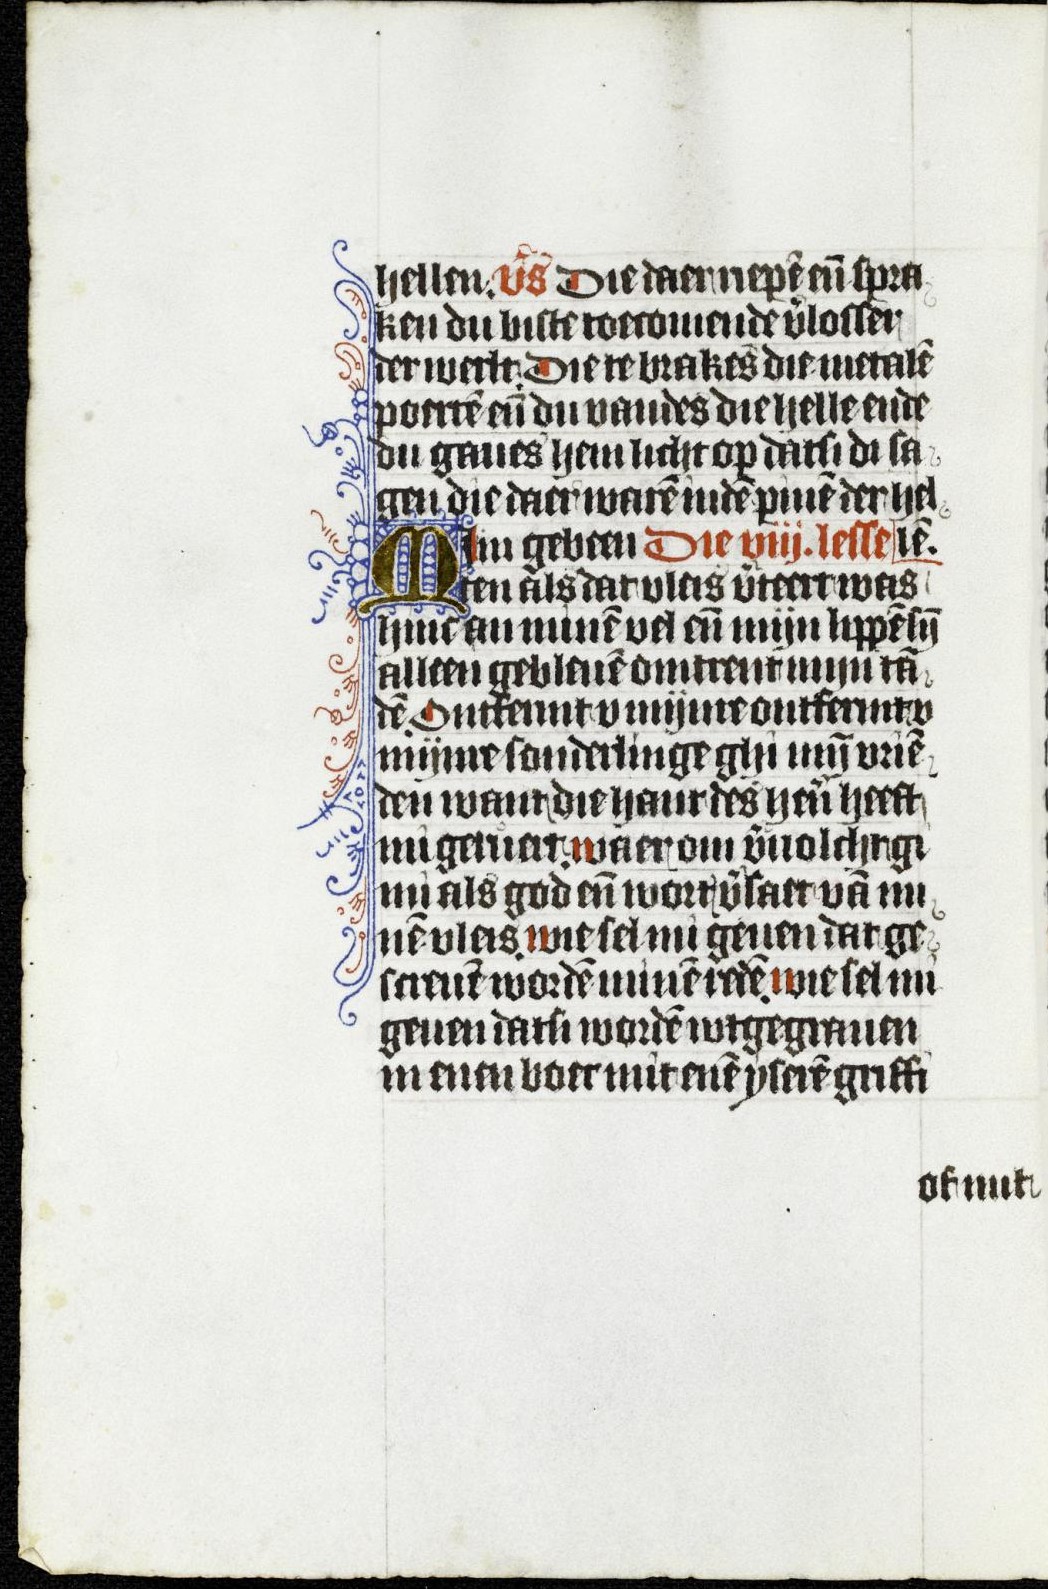 hellen. v̄s Die daer riepē eñ spra
ken du biste toecomende v̄losser
der werlt. Die te brakes die metalē
poertē eñ du vandes die helle ende
du gaues hem licht op dat si di sa
gen die daer warē in dē pinē der hel
Min gebeen Die viij. lesse lē.
ten als dat vleis v̄teert was
hinc an minē vel eñ mijn lippē sij̄
alleen gebleuē omtrent mijn tā
dē. Ontfermt v mijnre ontfermt v
mijnre sonderlinge ghi mij̄ vriē
den want die hant des heren̄ heeft
mi geruert. waer om v̄uolcht gi
mi als god eñ wort v̄saet vā mi
nē vleis. wie sel mi geuen dat ge
screuē wordē minē redē. wie sel mi
geuen dat si wordē wtgegrauen
in enen boec mit enē yserē griffi
of mit